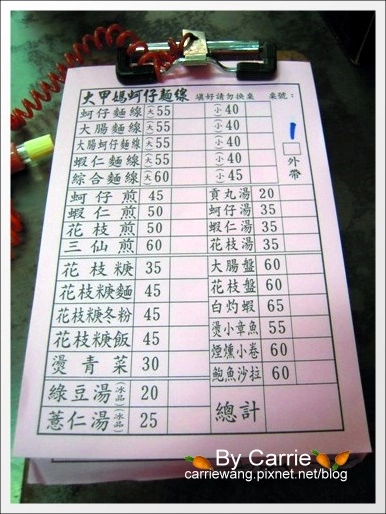 大甲媽蚵仔麵線 填好請勿換桌 桌號：
蚵仔麵線 (大) 55 (小) 40
大腸麵線 (大) 55 (小) 40
大腸蚵仔麵線 (大) 55 (小) 40
蝦仁麵線 (大) 55 (小) 40
綜合麵線 (大) 60 (小) 45
1
外帶
蚵仔煎 45 貢丸湯 20
蝦仁煎 50 蚵仔湯 35
花枝煎 50 蝦仁湯 35
三仙煎 60 花枝湯 35
花枝糖 35 大腸盤 60
花枝糖麵 45 花枝盤 60
花枝糖冬粉 45 白灼蝦 65
花枝糖飯 45 燙小章魚 55
燙青菜 30 煙燻小卷 60
鮑魚沙拉 60
綠豆湯 (冰品) 20
薏仁湯 (冰品) 25
總計
By Carrie
carriewang.pixnet.net/blog